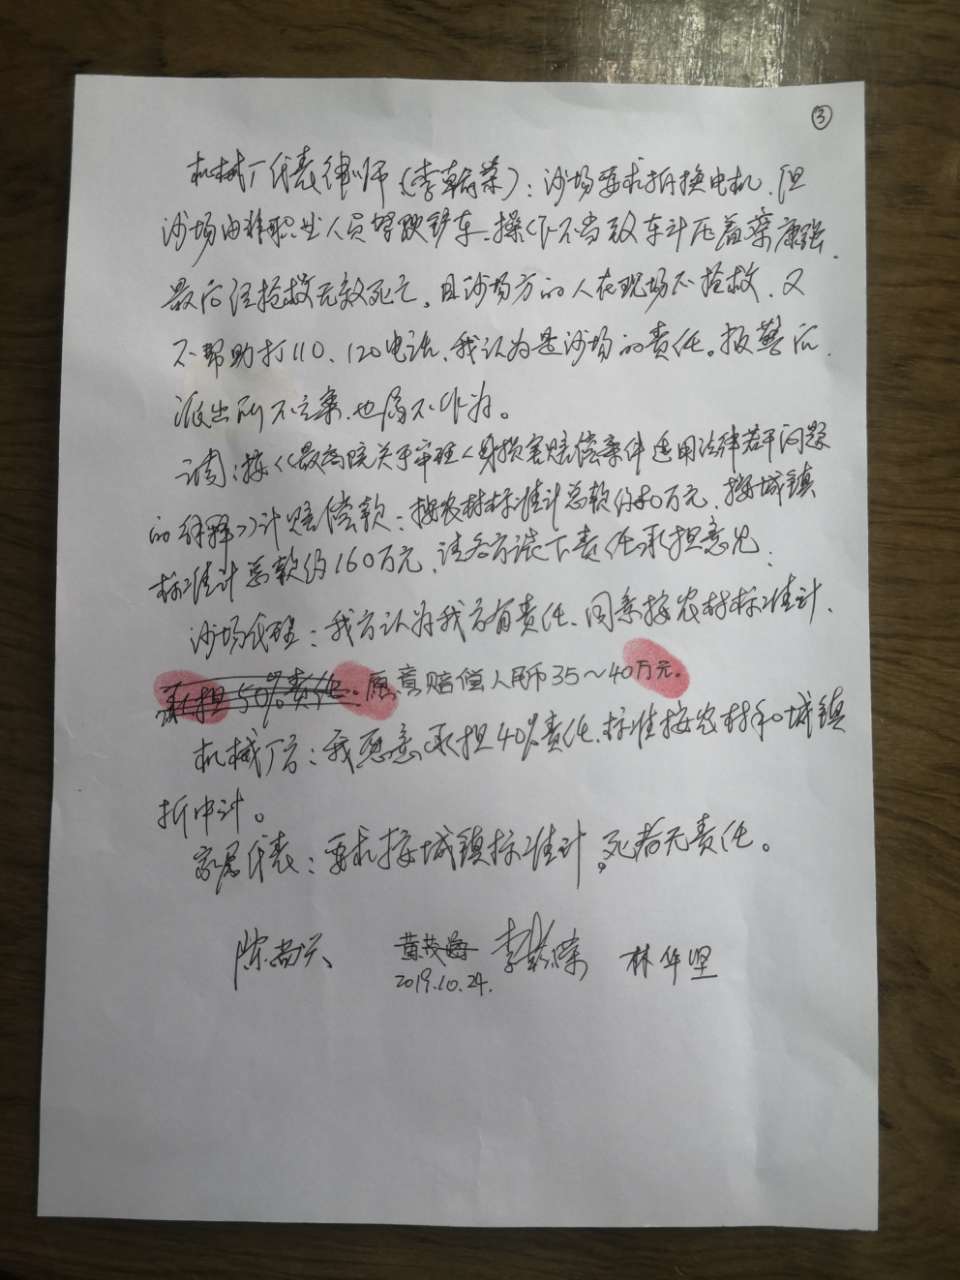 ③
机械厂代表律师(李翰荣):沙场要求拆换电机,但
沙场由非职业人员驾驶铲车,操作不当致车斗压盖蔡康强,
最后经抢救无效死亡。且沙场方的人在现场不抢救,又
不帮助打110、120电话,我认为是沙场的责任。报警后,
派出所不立案,也属不作为。
调:按《最高院关于审理人身损害赔偿案件适用法律若干问题
的解释》计赔偿款:按农村标准计总款约80万元,按城镇
标准计总款约160万元,请各方谈下责任承担意见。
沙场代理:我方认为我方有责任,同意按农村标准计,
承担50%责任。愿意赔偿人民币35~40万元。
机械厂方:我愿意承担40%责任,标准按农村和城镇
折中计。
家属代表:要求按城镇标准计,死者无责任。
陈 黄茂 李翰荣 林华坚
2019.10.24.